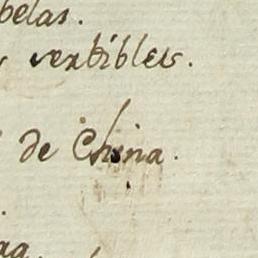 belas.
vextibles.
de China.